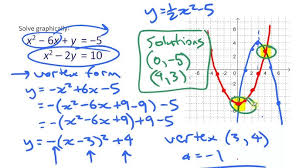 Solve graphically:
x² - 6x + y = -5
x² - 2y = 10
→ vertex form
y = -x² + 6x - 5
= -(x² - 6x + 9 - 9) - 5
= -(x² - 6x + 9) + 9 - 5
y = -(x - 3)² + 4
y = ½x² - 5
solutions
(0, -5)
(4, 3)
vertex (3, 4)
a = -1